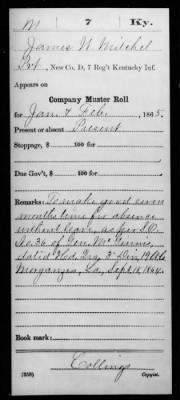 M 7 Ky.
James W. Mitchel
Pvt, New Co. D, 7 Reg't Kentucky Inf.
Appears on
Company Muster Roll
for Jan & Feb, 1865.
Present or absent Present
Stoppage, $ 100 for
Due Gov't, $ 100 for
Remarks: To make good seven
months time for absence
without leave, as per S.O.
No. 36 of Gen. McGinnis,
dated Hed. Qrs, 3d Div, 19 A.C.
Morganza, La, Sept. 18, 1864.
Book mark:
Collings
(358) Copyist.